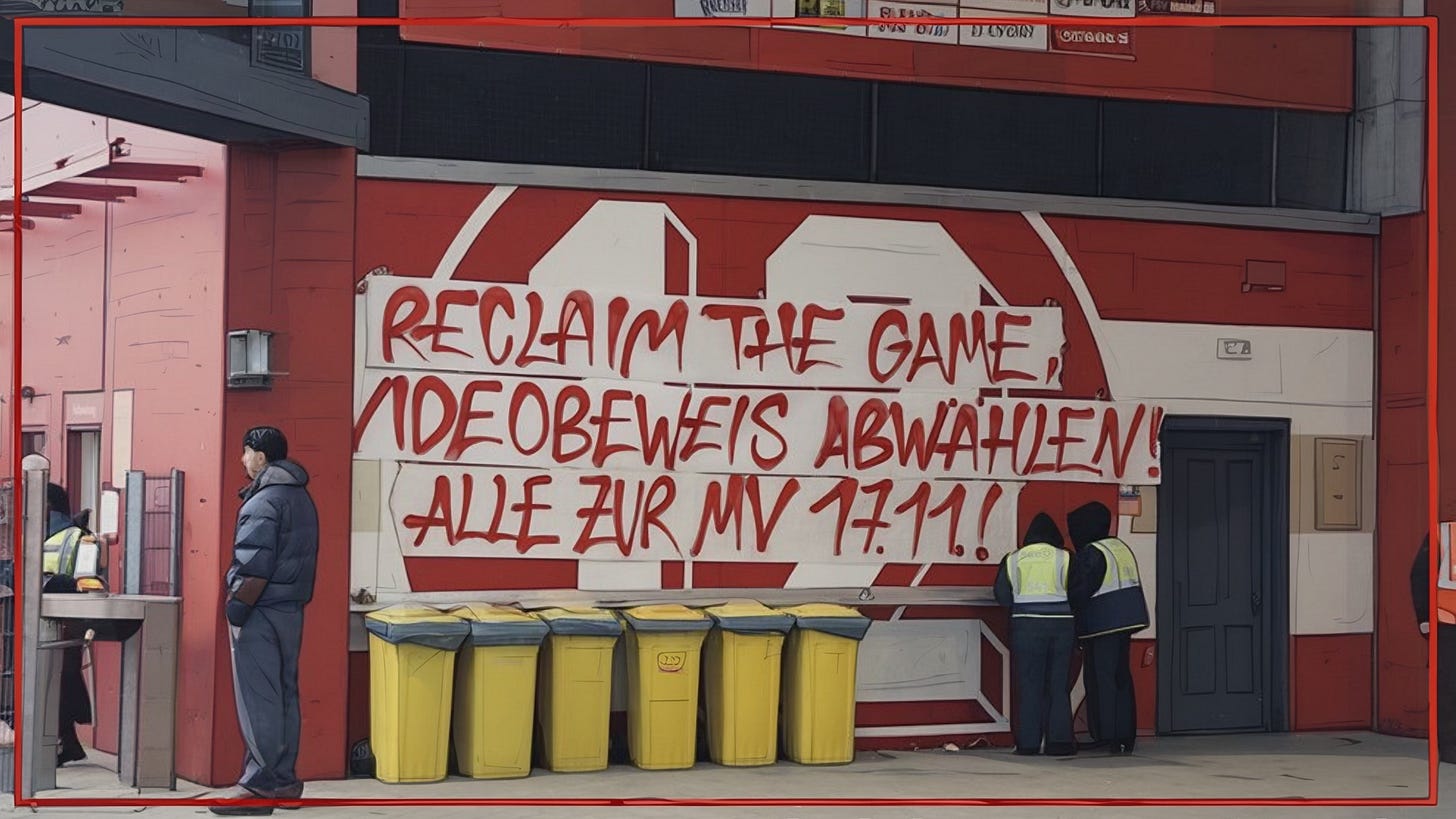 FSV MAINZ 05
RECLAIM THE GAME,
VIDEOBEWEIS ABWÄHLEN!
ALLE ZUR MV 17.11.!